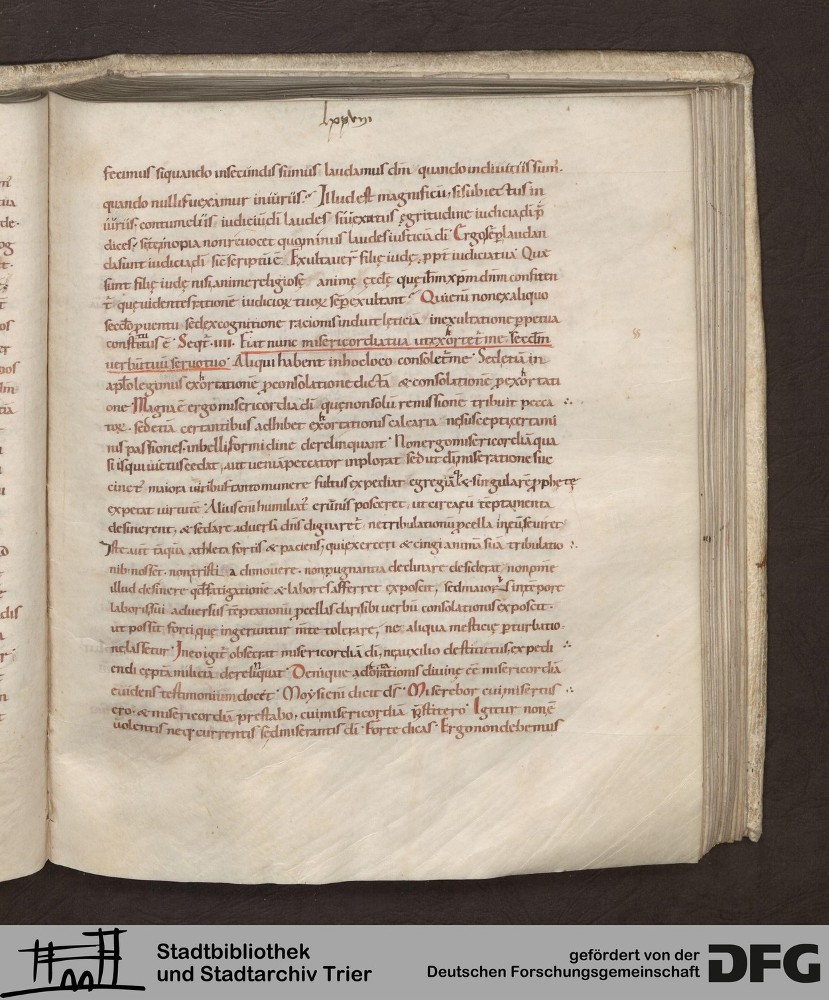 lxxviii
fecimus siquando insecundis sumus laudamus dm̄ quando indiuitiis sum᷒.
quando nulli fuexamur iniuriis. Illud est magnificū, si subiectus in
iuriis, contumeliis iudiciū di laudes siuexatus egritudine iudicia di p̄
dices, inopia nonreuocet quominus laudes iusticiā di. Ergo laudan
da sunt iudicia di sic scriptū ē. Exultauer̄ filię iudę, ppt̄ iudicia tua. Quę
sunt filię iudę nisi, animę religiosę animę ęcclę, quę ihm xp̄m dnm confiten
t̄ quę uidentes ratione iudicioꝝ tuoꝝ sep̄ exultant. Quieni non ex aliquo
sedex cognitione racionis induit lęticiā in exultatione ppetua
constitutus ē. Seqt̄. IIII. Fiat nunc misericordia tua ut exhortet̄ me. Secdm
uerbū tuū seruo tuo. Aliqui habent in hoc loco consolet̄ me. Sed etiā in
aplo legimus exhortationē p consolatione dictā & consolationē p exhortati
one. Magna ē ergo misericordia di, quę nonsolū remissionē tribuit pecca
toꝝ. sed etiā certantibus adhibet exhortationis calcaria ne suscepti certami
nis passiones, inbelli formidine derelinquant. Non ergo misericordiā qua
si is qui uictus cedat, aut ueniā peccator inplorat sed ut di miseratione suc
cinct̄ maiora uiribus tanto munere fultus expediat egregiā & singularē pphetę
expetat uirtutē. Alius eni humiliat̄ erūnis posceret, ut circa eū tēptamenta
desinerent, & sedare aduersa dns dignaret̄ ne tribulationū pcella in eū seuiret
Iste aut̄ tāquā athleta fortis & paciens, qui exerceri & cingi animā suā tribulatio
nib᷒ nosset. non tristi a dimouere. non pugnantia declinare desiderat, non om̄e
illud desinere qd fatigationē & laborē afferret exposcit, sed maiorū s intēpore
laborissui aduersus tēptationū pcellas dari sibi uerbū consolationis exposcit.
ut possit forti, quę ingeruntur m̄te tolerare, ne aliqua mesticię pturbatio
ne, lassetur. In eo igit̄ obsecrat misericordiā di, ne auxilio destitutus, expedi
endi cępta miliciā derelinquat. Denique adhortationis diuinę ēē misericordiā
euidens testimonium docet. Moysi eni dicit ds. Miserebor cui misertus
ero. & misericordiā prestabo, cui misericordiā p̄stitero. Igitur non ē
uolentis neq̨ currentis sed miserantis di. Forte dicas. Ergo non debemus
Stadtbibliothek
und Stadtarchiv Trier
gefördert von der
Deutschen Forschungsgemeinschaft
DFG